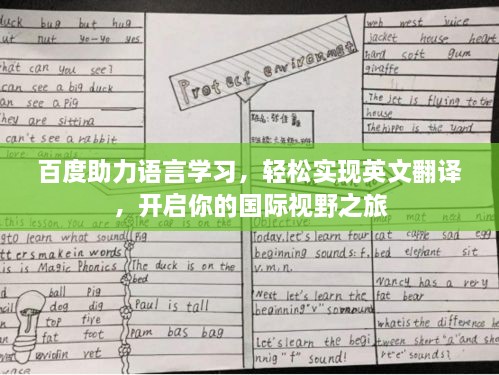 duck bug but hug
nut yo-yo yes
what can you see?
can see a big duck
can see a Pig
They are sitting
can't see a rabbit
Protecf enviromet
班名:张佳鑫
web west juice
jacket house heart
hard soft gum
giraffe
The jet is flying to the
house
The hippo is the yard
百度助力语言学习，轻松实现英文翻译
，开启你的国际视野之旅
to learn what sound
letters make in words
is is Magic Phonics
ball pig
dog dig
top five
fat foot
violin vet
The duck is on the
bed
Paul is tall
Pam bas bag
Today, let's learn four
beginning sounds: f,
v. m. n.
Next let's learn the
beginning "v" sound
Let's learn the begi
nning "f" sound!
cat cappe sad egg
bed elephant sit
Nancy has a very
fat bear
what is the difference be
tween short "a" and sho
rt "e" sounds?